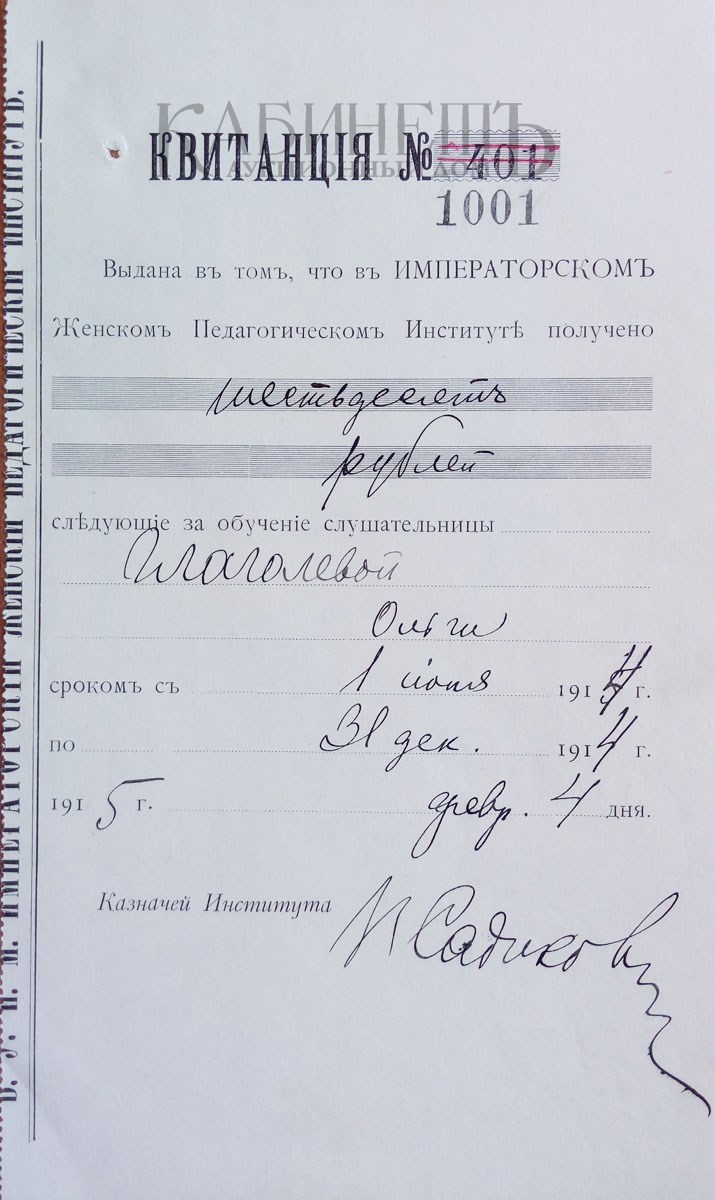 КАБИНЕТЪ
АУКЦИОННЫЙ ДОМ
КВИТАНЦІЯ № 401
1001
Выдана въ томъ, что въ ИМПЕРАТОРСКОМЪ
Женскомъ Педагогическомъ Институтѣ получено
шестьдесятъ
рублей
слѣдующіе за обученіе слушательницы
Глаголевой
Ольги
срокомъ съ 1 іюля 1914 г.
по 31 дек. 1914 г.
1915 г. февр. 4 дня.
Казначей Института
Садиковъ
В. У. И. М. ИМПЕРАТОРСКІЙ ЖЕНСКІЙ ПЕДАГОГИЧЕСКІЙ ИНСТИТУТЪ.